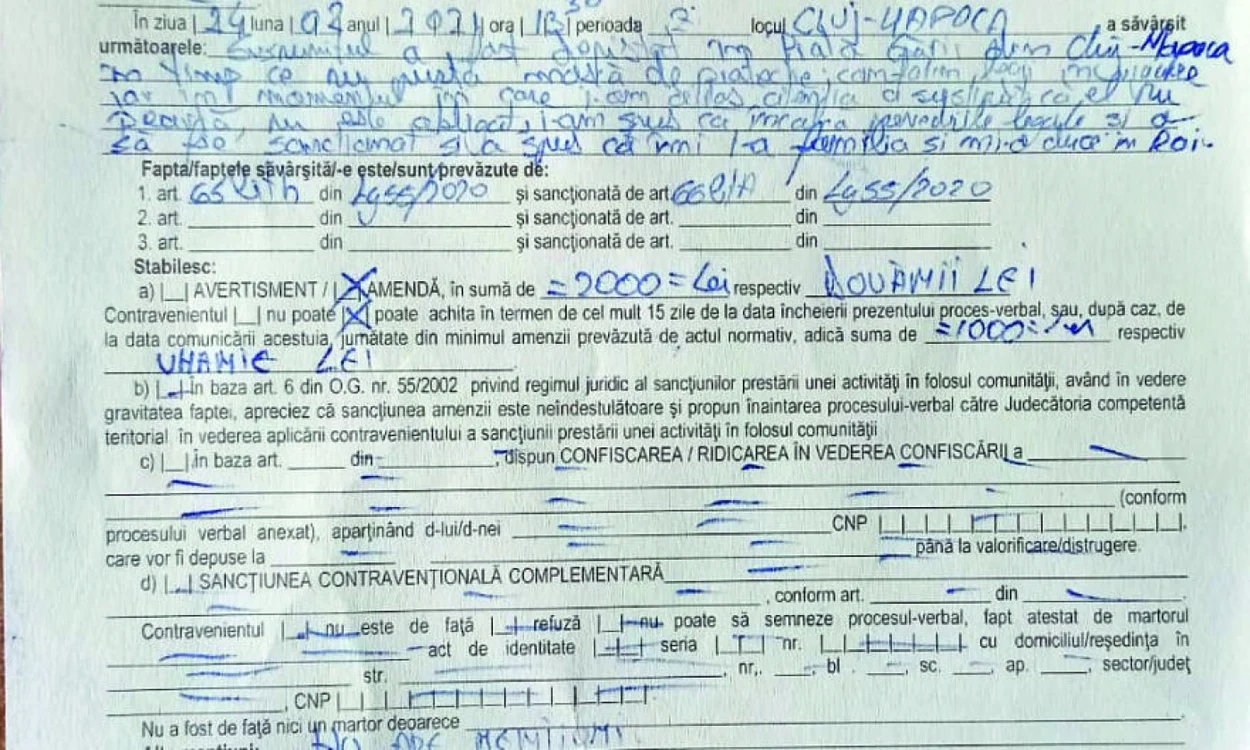 În ziua |24| luna |02| anul |2021| ora |13 30| perioada 2 locul CLUJ-NAPOCA a săvârșit
următoarele: Susnumitul a fost depistat în Piața Gării din Cluj-Napoca
în timp ce nu purta mască de protecție, conform legii în vigoare
iar în momentul în care i-am a susținut că el nu
poartă, nu este obligat, i-am spus că încalcă prevederile legale și
să fie sancționat și a spus că îmi familia și mi-o duce în
Fapta/faptele săvârșită/-e este/sunt prevăzute de:
1. art. 65 lit h din Lg 55/2020 și sancționată de art. 66 lit A din Lg 55/2020
2. art. din și sancționată de art. din
3. art. din și sancționată de art. din
Stabilesc:
a) |_| AVERTISMENT / |X| AMENDĂ, în sumă de =2000= Lei respectiv DOUĂMII LEI
Contravenientul |_| nu poate |X| poate achita în termen de cel mult 15 zile de la data încheierii prezentului proces-verbal, sau, după caz, de
la data comunicării acestuia, jumătate din minimul amenzii prevăzută de actul normativ, adică suma de =1000= respectiv
UNAMIE LEI
b) |_| În baza art. 6 din O.G. nr. 55/2002 privind regimul juridic al sancțiunilor prestării unei activități în folosul comunității, având în vedere
gravitatea faptei, apreciez că sancțiunea amenzii este neîndestulătoare și propun înaintarea procesului-verbal către Judecătoria competentă
teritorial în vederea aplicării contravenientului a sancțiunii prestării unei activități în folosul comunității
c) |_| în baza art. din , dispun CONFISCAREA / RIDICAREA ÎN VEDEREA CONFISCĂRII a
(conform
procesului verbal anexat), aparținând d-lui/d-nei CNP
care vor fi depuse la până la valorificare/distrugere.
d) |_| SANCȚIUNEA CONTRAVENȚIONALĂ COMPLEMENTARĂ
, conform art. din
Contravenientul |_| nu este de față |_| refuză |_| nu poate să semneze procesul-verbal, fapt atestat de martorul
act de identitate seria nr. cu domiciliul/reședința în
str. , nr,. , bl . , sc. , ap. sector/județ
, CNP
Nu a fost de față nici un martor deoarece
NU ARE MENȚIUNI